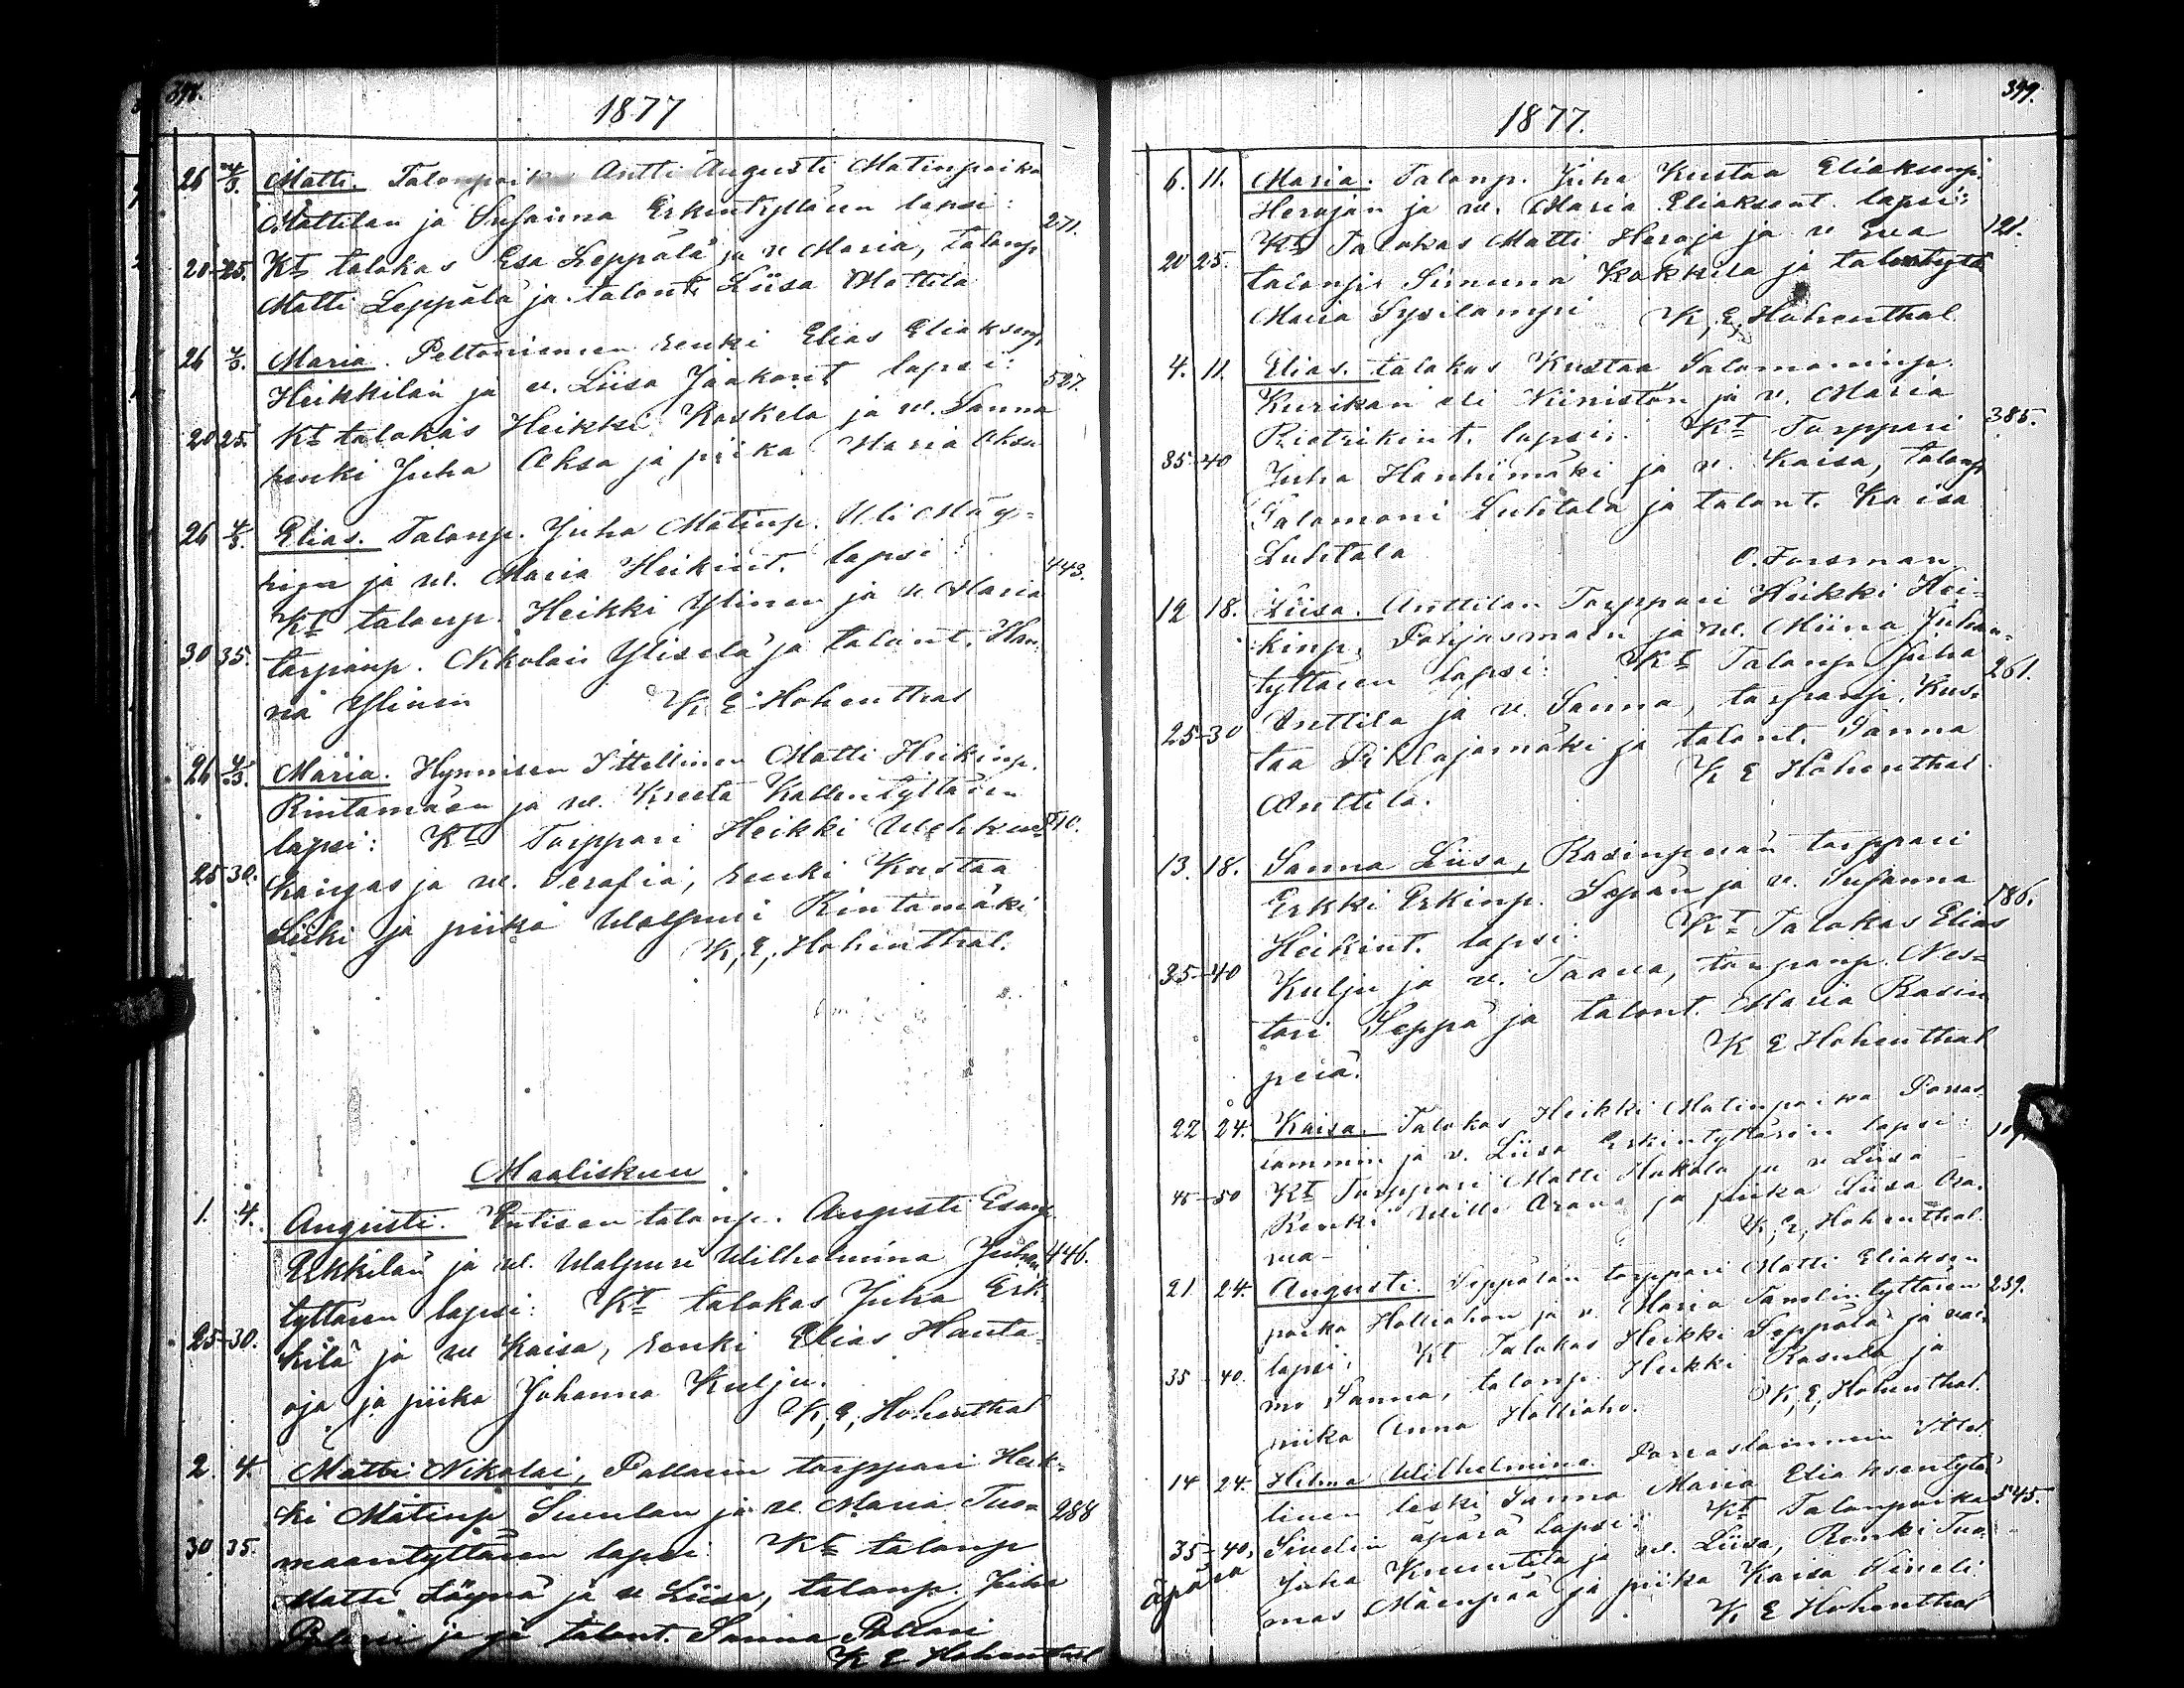 398.
1877
26 4/3. Matti. Talonpoik Antti Augusti Matinpoika
Mattilan ja Susanna Erkintyttären lapsi: 271.
20-25. Kt talokas Esa Leppälä ja v Maria, talonp
Matti Leppälä ja talont. Liisa Mattila
26 4/3. Maria. Peltoniemen renki Elias Eliaksenp.
Heikkilän ja v. Liisa Jaakont lapsi: 527.
20 25. Kt talokas Heikki Koskela ja v. Sanna
renki Juha Aksa ja piika Maria Aksa
26 4/3. Elias. Talonp. Juha Matinp.
ja v. Maria Heikint. lapsi: 443.
Kt talonp. Heikki Ylinen ja v Maria
30 35. torpanp. Nikolai Ylisela ja talont. Han-
na Ylinen K E Hohenthal
26 4/3. Maria. Hynnisen Ittellinen Matti Heikinp.
Rintamäen ja v. Kreeta Kallentyttären
lapsi: Kt Torppari Heikki Uusihau- 510.
25 30. kangas ja v. Serafia, renki Kustaa
Liiki ja piika Walpuri Rintamäki
K, E, Hohenthal.
Maaliskuu
1. 4. Augusti. Entisen talonp. Augusti Esanp.
Erkkilän ja v. Walpuri Wilhelmina Juhan 446.
tyttären lapsi: Kt talokas Juha Erk-
25-30. kilä ja v Kaisa, renki Elias Hauta-
oja ja piika Johanna Kulju.
K, E, Hohenthal
2. 4. Matti Nikolai, Pollarin torppari Heik-
ki Matinp Suulan ja v. Maria Tuo- 288
maantyttären lapsi: Kt talonp
30 35. Matti Löynä ja v Liisa, talonp. Juha
Pollari ja ja talont. Sanna Pollari
K E Hohenthal
399.
1877.
6. 11. Maria. Talonp. Juha Kustaa Eliaksenp.
Herajan ja v. Maria Eliaksent. lapsi: 121.
Kt Talokas Matti Heraja ja v Eva
20 25. talonp. Simuna Kokkila ja talontyttö
Maria Sysilampi K, E, Hohenthal
4. 11. Elias. talokas Kustaa Salomoninp.
Kurikan eli Niiniston ja v. Maria
Rietrikint. lapsi: Kt Torppari 385.
35-40 Juha Hanhimäki ja v. Kaisa, talonp
Salomoni Luhtala ja talont. Kaisa
Luhtala O. Forsman
12 18. Liisa. Anttilan Torppari Heikki Hei-
kinp. Pohjasmaen ja v. Miina Juhan-
tyttären lapsi: Kt Talonp Juha 261.
25-30 Anttila ja v. Sanna, torpanp. Kus-
taa Pihlajamäki ja talont. Sanna
Anttila. K E Hohenthal
13. 18. Sanna Liisa, Rasinperän torppari
Erkki Erkinp. Sepän ja v. Susanna 186.
Heikint. lapsi: Kt Talokas Elias
35-40 Kulju ja v. Taava, torpanp. Nes-
tori Seppä ja talont. Maria Rasin
perä. K E Hohenthal
22 24. Kaisa. Talokas Heikki Matinpoika Porras-
lammin ja v. Liisa Erkintyttären lapsi:
45-50 Kt Torppari Matti Hakala ja v Liisa
Renki Wille Orava ja piika Liisa Ora-
va- K, E, Hohenthal.
21 24. Augusti. Seppälän torppari Matti Eliaksen
poika Halliahon ja v. Maria Tanelintyttären 239.
lapsi: Kt Talokas Heikki Seppälä ja vai-
35-40. mo Sanna, talonp. Heikki Rasula ja
piika Anna Halliaho. K, E, Hohenthal.
14 24. Helma Wilhelmina. Porraslammin Ittel-
linen leski Sanna Maria Eliaksentytö
Sinelin äpärä lapsi: Kt Talonpoika 545.
35-40, Juha Knuutila ja v. Liisa, Renki Tuo-
äpärä mas Mäenpää ja piika Kaisa Sineli
K E Hohenthal